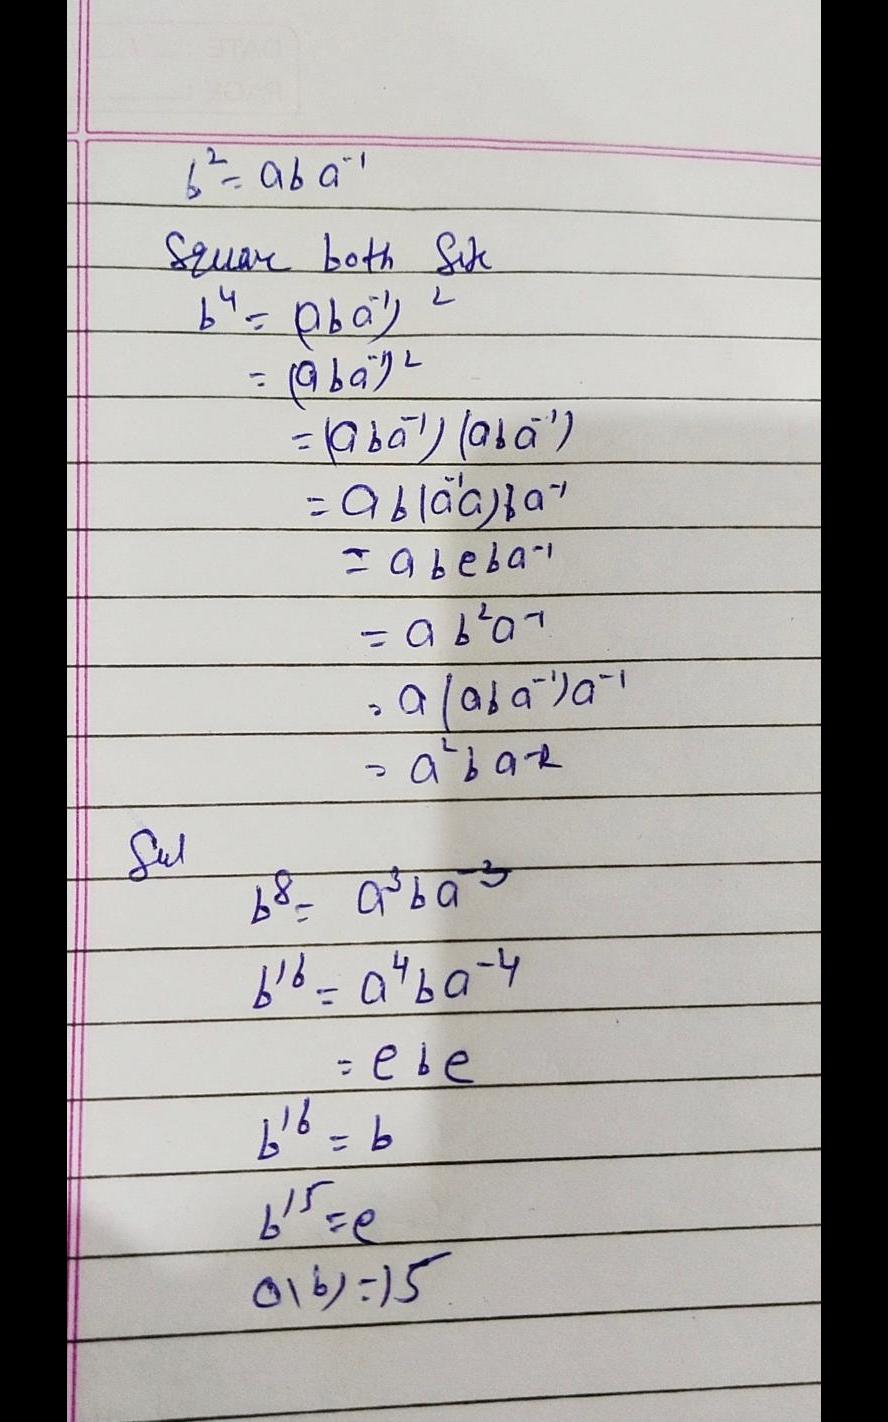 b² = aba⁻¹
Square both
b⁴ = (aba⁻¹)²
= (aba⁻¹)²
= (aba⁻¹)(aba⁻¹)
= ab(a⁻¹a)ba⁻¹
= abeba⁻¹
= ab²a⁻¹
= a(aba⁻¹)a⁻¹
= a²ba⁻²
b⁸ = a³ba⁻³
b¹⁶ = a⁴ba⁻⁴
= ebe
b¹⁶ = b
b¹⁵ = e
o(b) = 15